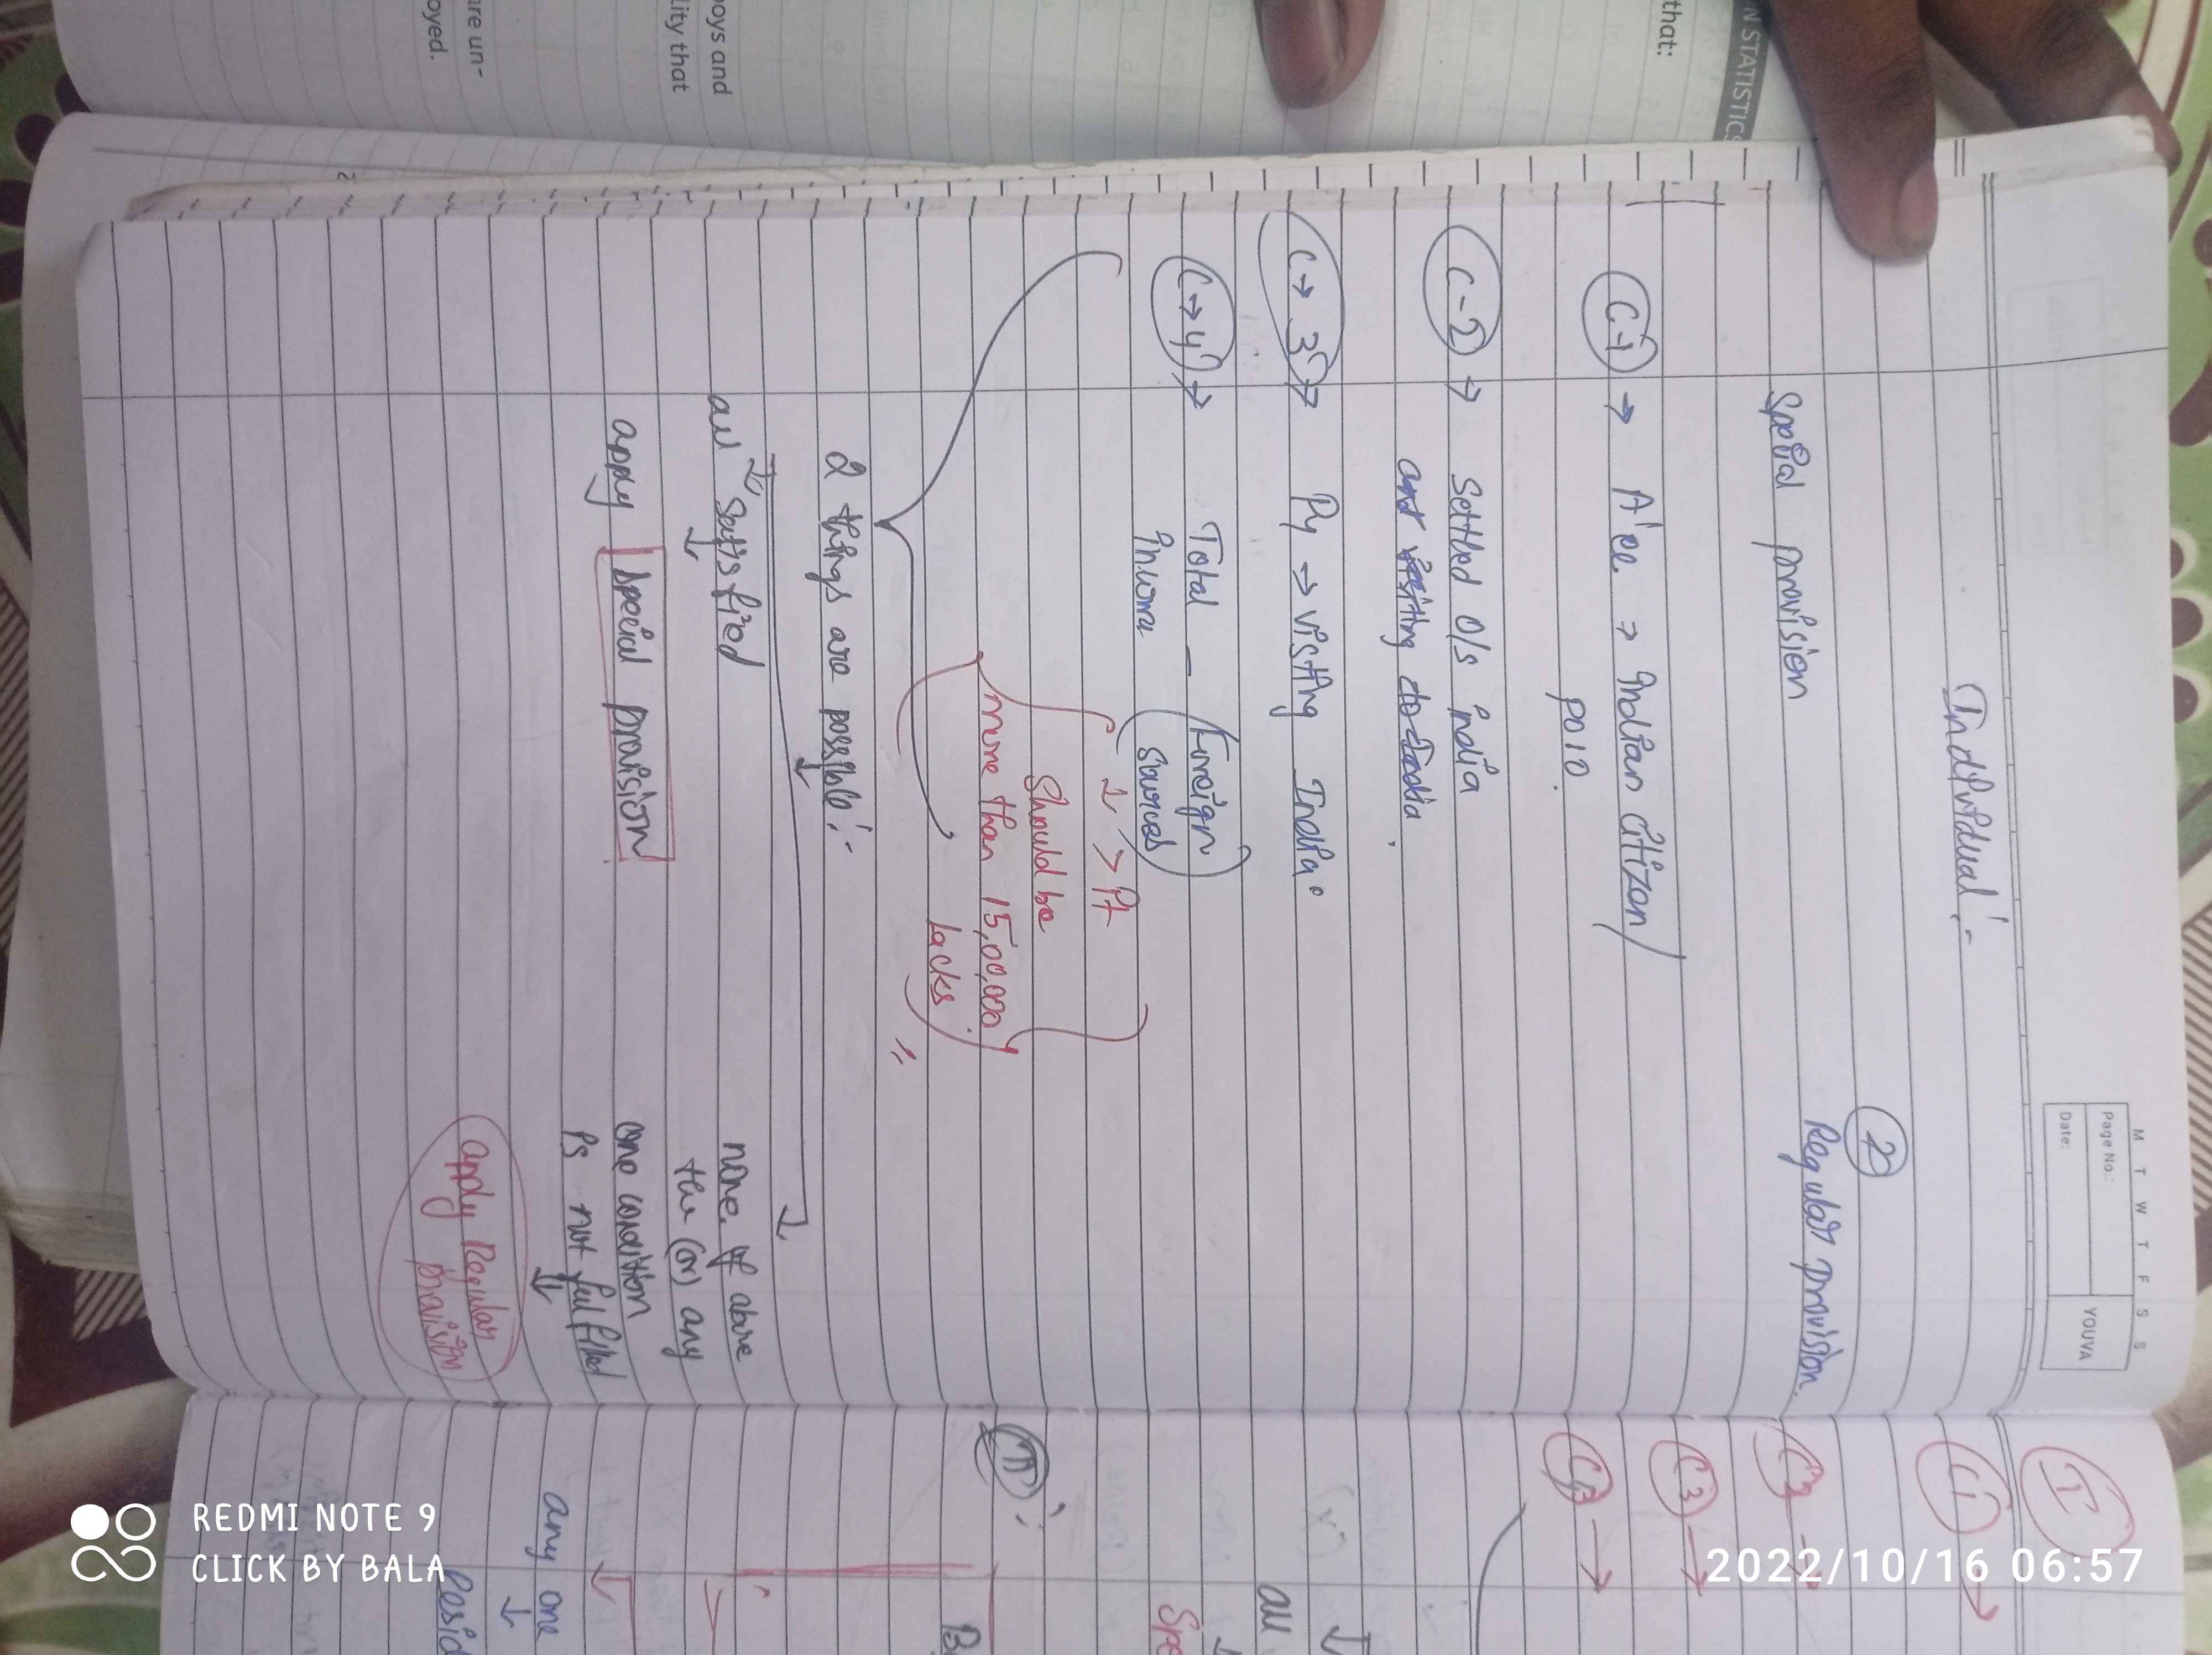 M T W T F S S
Page No.:
Date:
YOUVA
Individual:-
2
Speial provision
Regular provision.
C-1 → A'ee → Indian Citizen/
POIO.
C-2 → Settled O/s india
and visiting to India.
C→3 → Py → visiting India.
C→4 → Total - (Foreign
inuome sources)
↓ > It
Should be
more than 15,00,000
lacks.
2 things are possible:-
all Satisfied
apply special provision
none of above
the (or) any
one condition
is not fulfilled
apply Regular
provision
I
C1 →
C2 →
C3 →
all
Spe
any one
Resid
N STATISTICS
that:
boys and
lity that
are un-
oyed.
REDMI NOTE 9
CLICK BY BALA
2022/10/16 06:57